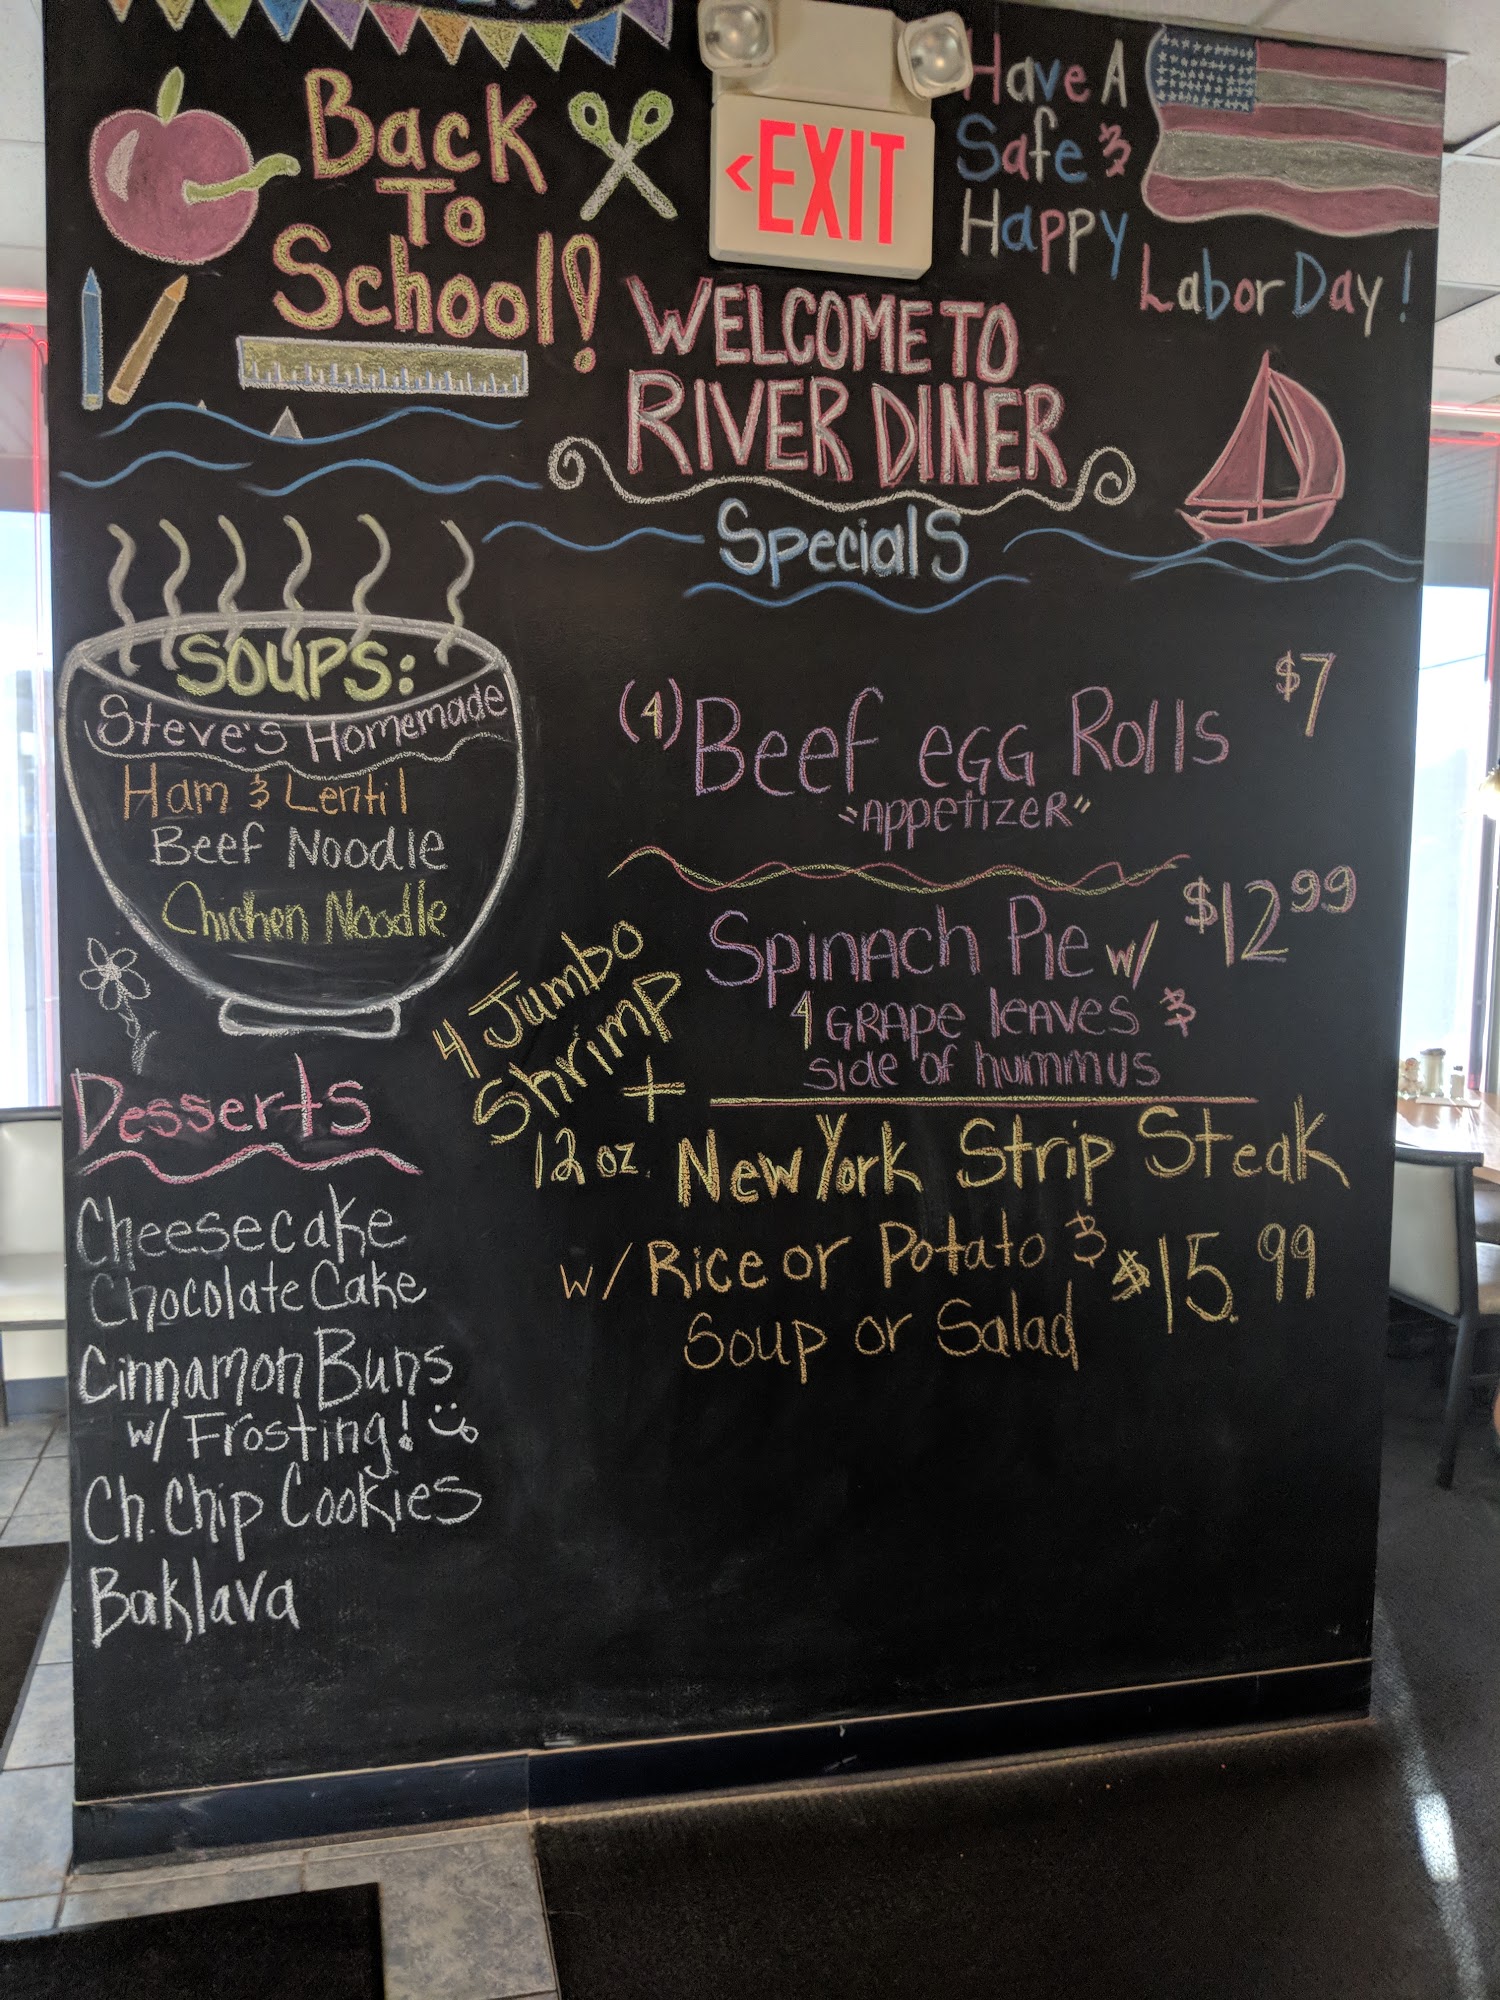 Back
To
School!
<EXIT
Have A
Safe &
Happy
Labor Day!
WELCOME TO
RIVER DINER
Specials
SOUPS:
Steve's Homemade
Ham & Lentil
Beef Noodle
Chicken Noodle
Desserts
Cheesecake
Chocolate Cake
Cinnamon Buns
w/ Frosting!
Ch. Chip Cookies
Baklava
(4) Beef egg Rolls $7
"Appetizer"
Spinach Pie w/ $12.99
4 Grape leaves &
side of hummus
4 Jumbo
Shrimp
+
12 oz. New York Strip Steak
w/ Rice or Potato & $15.99
Soup or Salad